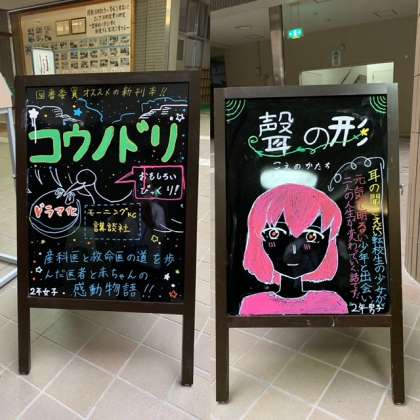 図書委員オススメの新刊本!!
コウノドリ
おもしろい
びっくり!
ドラマ化
モーニングKC
講談社
産科医と救命医の道を歩
んだ医者と赤ちゃんの
感動物語!!
2年女子
聲の形
こえのかたち
耳の聞こえない転校生の少女が
元気で明るい少年と出会い
二人の人生がまわっていく話です。
2年男子